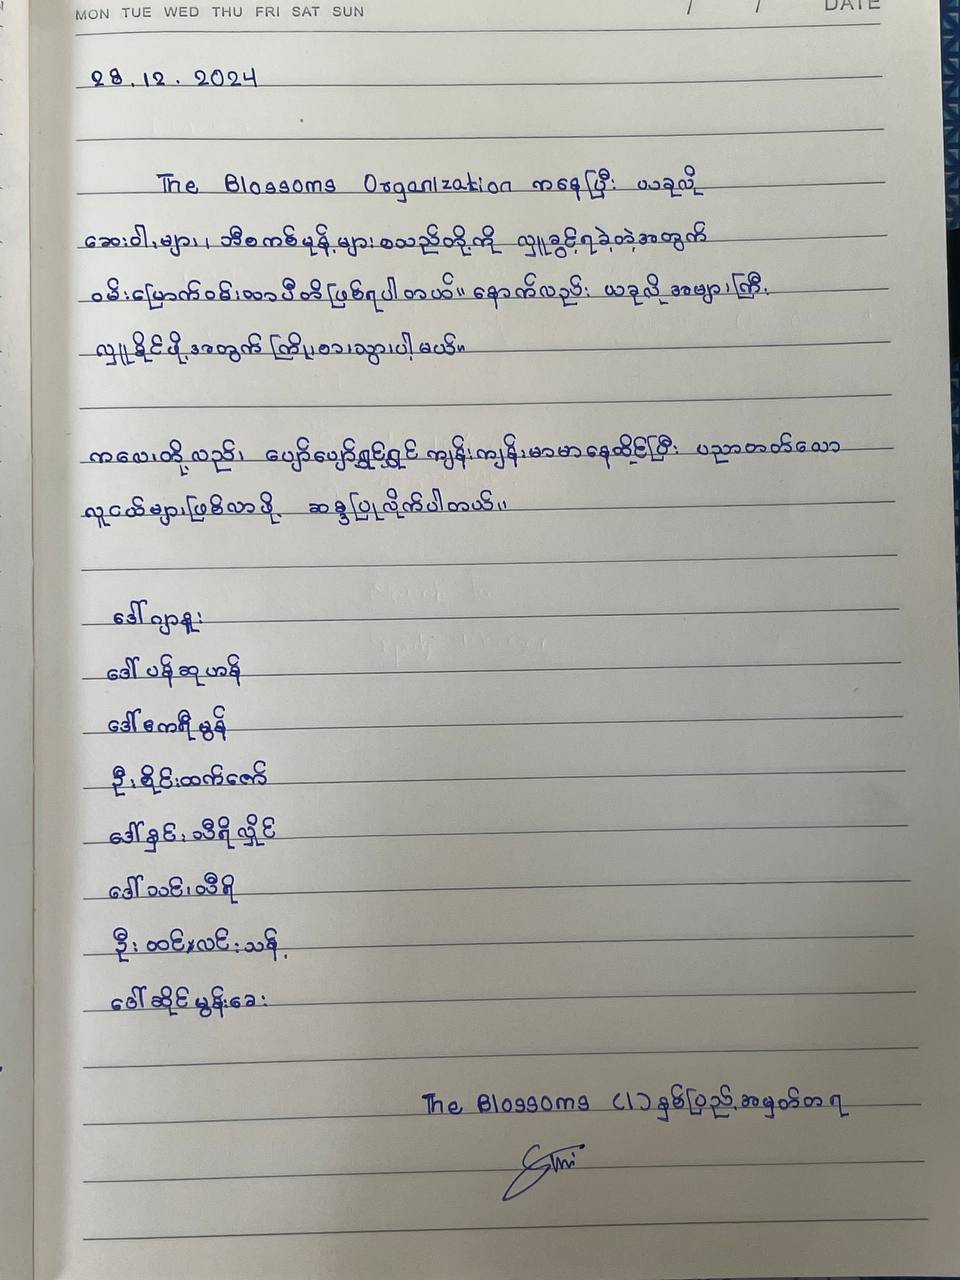 MON TUE WED THU FRI SAT SUN
/ / DATE
28.12.2024
The Blossoms Organization ကနေပြီး ယခုလို
ဆေးဝါးများ၊ ဘီစကစ်မုန့်များစသည်တို့ကို လှူခွင့်ရခဲ့တဲ့အတွက်
ဝမ်းမြောက်ဝမ်းသာပီတိဖြစ်ရပါတယ်။ နောက်လည်း ယခုလိုအများကြီး
လှူနိုင်ဖို့အတွက် ကြိုးစားသွားပါ့မယ်။
ကလေးတို့လည်း ပျော်ပျော်ရွှင်ရွှင် ကျန်းကျန်းမာမာနေထိုင်ပြီး ပညာတတ်သော
လူငယ်များဖြစ်လာဖို့ ဆန္ဒပြုလိုက်ပါတယ်။
ဒေါ်ဂျာနူး
ဒေါ်ပန်ဆုဟန်
ဒေါ်ကေရီမွန်
ဦးစိုင်းထက်ဇော်
ဒေါ်နှင်းသီရိလှိုင်
ဒေါ်သင်းသီရိ
ဦးထင်လင်းသန့်
ဒေါ်ဆိုင်မွန်းခေး
The Blossoms (၂) နှစ်ပြည့်အမှတ်တရ